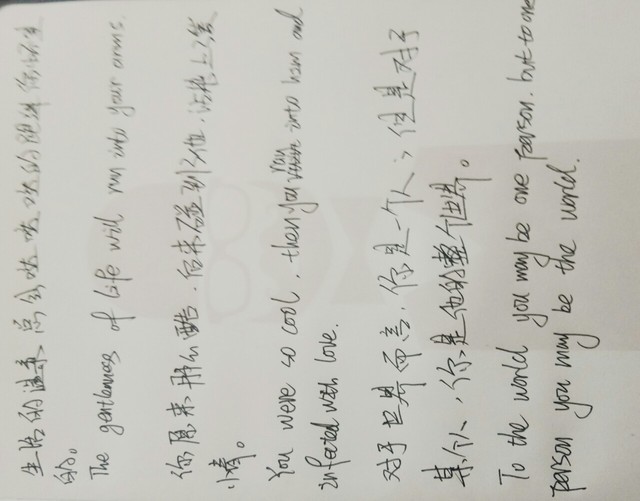 生活的温柔总会哒哒哒的跑进你怀里
的。
The gentleness of life will run into your arms.
你原来那么酷，后来碰到了他，沾染上了爱
情。
You were so cool. then you ran into him and
infected with love.
对于世界而言，你是一个人，但是对于
某个人，你是他的整个世界。
To the world you may be one person. but to one
person you may be the world.